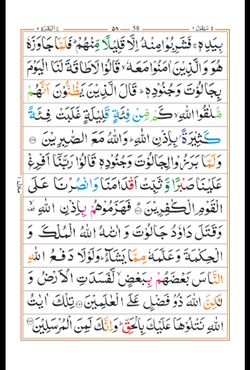 بِيَدِهٖ ۚ فَشَرِبُوْا مِنْهُ اِلَّا قَلِيْلًا مِّنْهُمْ ؕ فَلَمَّا جَاوَزَهٗ
هُوَ وَالَّذِيْنَ اٰمَنُوْا مَعَهٗ ۙ قَالُوْا لَا طَاقَةَ لَنَا الْيَوْمَ
بِجَالُوْتَ وَجُنُوْدِهٖ ؕ قَالَ الَّذِيْنَ يَظُنُّوْنَ اَنَّهُمْ
مُّلٰقُوا اللّٰهِ ۙ كَمْ مِّنْ فِئَةٍ قَلِيْلَةٍ غَلَبَتْ فِئَةً
كَثِيْرَةًۢ بِاِذْنِ اللّٰهِ ؕ وَاللّٰهُ مَعَ الصّٰبِرِيْنَ
وَلَمَّا بَرَزُوْا لِجَالُوْتَ وَجُنُوْدِهٖ قَالُوْا رَبَّنَاۤ اَفْرِغْ
عَلَيْنَا صَبْرًا وَّثَبِّتْ اَقْدَامَنَا وَانْصُرْنَا عَلَى
الْقَوْمِ الْكٰفِرِيْنَ ؕ فَهَزَمُوْهُمْ بِاِذْنِ اللّٰهِ ۙ
وَقَتَلَ دَاوٗدُ جَالُوْتَ وَاٰتٰىهُ اللّٰهُ الْمُلْكَ وَ
الْحِكْمَةَ وَعَلَّمَهٗ مِمَّا يَشَآءُ ؕ وَلَوْلَا دَفْعُ اللّٰهِ
النَّاسَ بَعْضَهُمْ بِبَعْضٍ لَّفَسَدَتِ الْاَرْضُ وَ
لٰكِنَّ اللّٰهَ ذُوْ فَضْلٍ عَلَى الْعٰلَمِيْنَ تِلْكَ اٰيٰتُ
اللّٰهِ نَتْلُوْهَا عَلَيْكَ بِالْحَقِّ ؕ وَاِنَّكَ لَمِنَ الْمُرْسَلِيْنَ